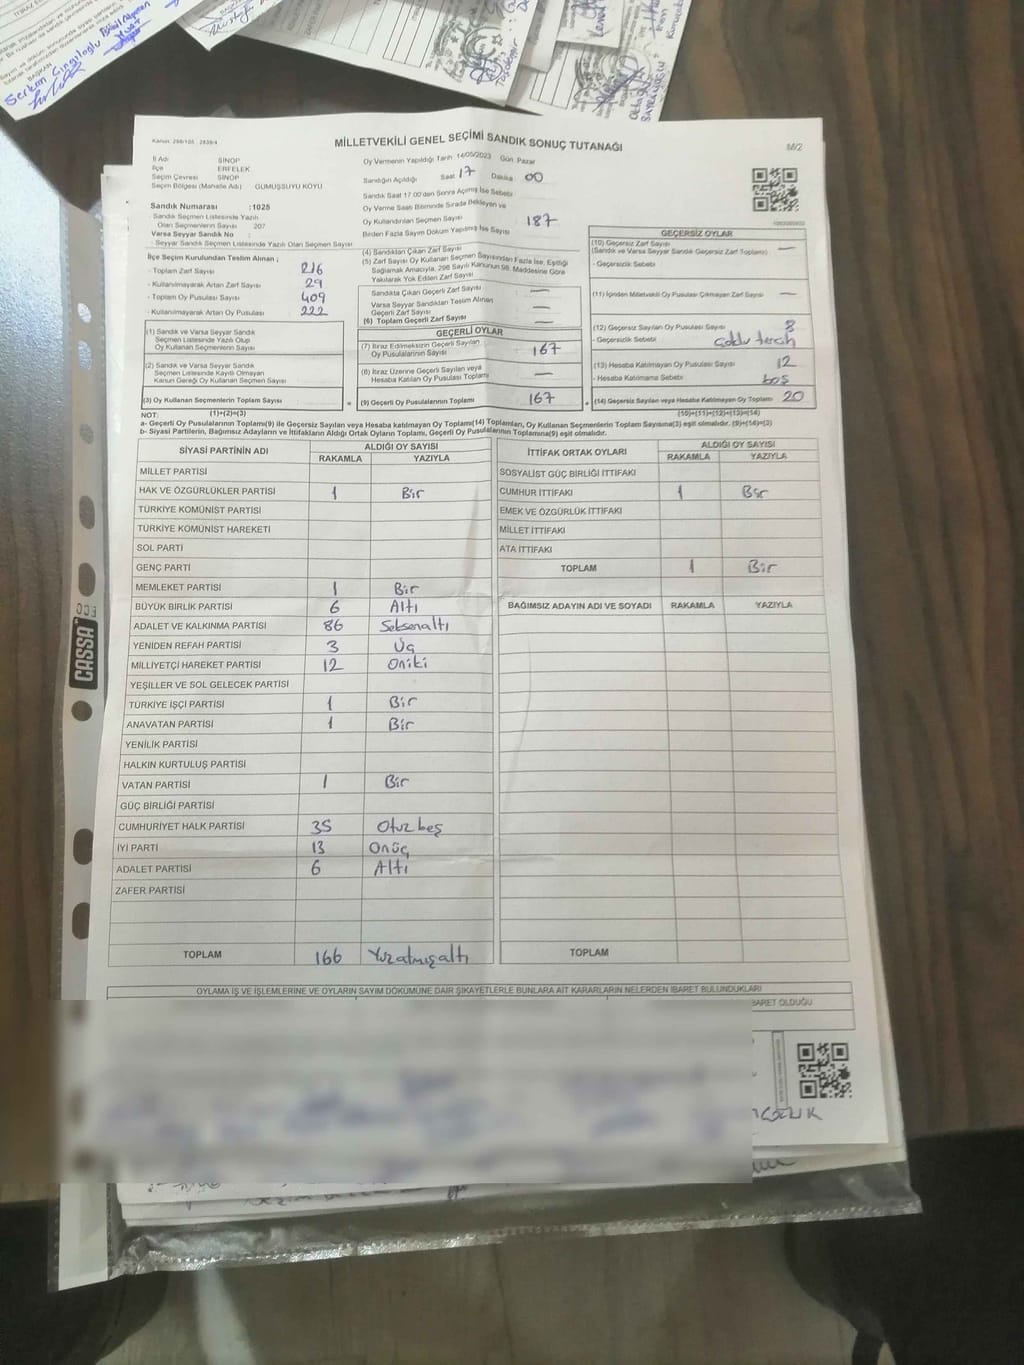 MİLLETVEKİLİ GENEL SEÇİMİ SANDIK SONUÇ TUTANAĞI
M/2
İl Adı SİNOP
İlçe ERFELEK
Seçim Çevresi SİNOP
Seçim Bölgesi (Mahalle Adı) GÜMÜŞSUYU KÖYÜ
Oy Vermenin Yapıldığı Tarih 14/05/2023 Gün Pazar
Sandığın Açıldığı Saat 17 Dakika 00
Sandık Saat 17:00'den Sonra Açılmış İse Sebebi
Oy Verme Saati Bitiminde Sırada Bekleyen ve
Oy Kullandırılan Seçmen Sayısı 187
Birden Fazla Sayım Döküm Yapılmış İse Sayısı
Sandık Numarası : 1025
- Sandık Seçmen Listesinde Yazılı
Olan Seçmenlerin Sayısı 207
Varsa Seyyar Sandık No :
- Seyyar Sandık Seçmen Listesinde Yazılı Olan Seçmen Sayısı
İlçe Seçim Kurulundan Teslim Alınan ;
- Toplam Zarf Sayısı 216
- Kullanılmayarak Artan Zarf Sayısı 29
- Toplam Oy Pusulası Sayısı 409
- Kullanılmayarak Artan Oy Pusulası 222
(1) Sandık ve Varsa Seyyar Sandık
Seçmen Listesinde Yazılı Olup
Oy Kullanan Seçmenlerin Sayısı
(2) Sandık ve Varsa Seyyar Sandık
Seçmen Listesinde Kayıtlı Olmayan
Kanun Gereği Oy Kullanan Seçmen Sayısı
(3) Oy Kullanan Seçmenlerin Toplam Sayısı :
(1)+(2)=(3)
(4) Sandıktan Çıkan Zarf Sayısı
(5) Zarf Sayısı Oy Kullanan Seçmen Sayısından Fazla İse, Eşitliği
Sağlamak Amacıyla, 298 Sayılı Kanunun 98. Maddesine Göre
Yakılarak Yok Edilen Zarf Sayısı
Sandıkta Çıkan Geçerli Zarf Sayısı —
Varsa Seyyar Sandıktan Teslim Alınan
Geçerli Zarf Sayısı —
(6) Toplam Geçerli Zarf Sayısı —
GEÇERLİ OYLAR
(7) İtiraz Edilmeksizin Geçerli Sayılan
Oy Pusulalarının Sayısı 167
(8) İtiraz Üzerine Geçerli Sayılan veya
Hesaba Katılan Oy Pusulası Toplamı —
= (9) Geçerli Oy Pusulalarının Toplamı 167
GEÇERSİZ OYLAR
(10) Geçersiz Zarf Sayısı
(Sandık ve Varsa Seyyar Sandık Geçersiz Zarf Toplamı) —
- Geçersizlik Sebebi
(11) İçinden Milletvekili Oy Pusulası Çıkmayan Zarf Sayısı —
(12) Geçersiz Sayılan Oy Pusulası Sayısı 8
- Geçersizlik Sebebi çoklu tercih
(13) Hesaba Katılmayan Oy Pusulası Sayısı 12
- Hesaba Katılmama Sebebi boş
+ (14) Geçersiz Sayılan veya Hesaba Katılmayan Oy Toplamı 20
(10)+(11)+(12)+(13)=(14)
NOT:
a- Geçerli Oy Pusulalarının Toplamı(9) ile Geçersiz Sayılan veya Hesaba katılmayan Oy Toplamı(14) Toplamları, Oy Kullanan Seçmenlerin Toplam Sayısına(3) eşit olmalıdır. (9)+(14)=(3)
b- Siyasi Partilerin, Bağımsız Adayların ve İttifakların Aldığı Ortak Oyların Toplamı, Geçerli Oy Pusulalarının Toplamına(9) eşit olmalıdır.
SİYASİ PARTİNİN ADI ALDIĞI OY SAYISI
RAKAMLA YAZIYLA
MİLLET PARTİSİ
HAK VE ÖZGÜRLÜKLER PARTİSİ 1 Bir
TÜRKİYE KOMÜNİST PARTİSİ
TÜRKİYE KOMÜNİST HAREKETİ
SOL PARTİ
GENÇ PARTİ
MEMLEKET PARTİSİ 1 Bir
BÜYÜK BİRLİK PARTİSİ 6 Altı
ADALET VE KALKINMA PARTİSİ 86 Seksenaltı
YENİDEN REFAH PARTİSİ 3 Üç
MİLLİYETÇİ HAREKET PARTİSİ 12 Oniki
YEŞİLLER VE SOL GELECEK PARTİSİ
TÜRKİYE İŞÇİ PARTİSİ 1 Bir
ANAVATAN PARTİSİ 1 Bir
YENİLİK PARTİSİ
HALKIN KURTULUŞ PARTİSİ
VATAN PARTİSİ 1 Bir
GÜÇ BİRLİĞİ PARTİSİ
CUMHURİYET HALK PARTİSİ 35 Otuzbeş
İYİ PARTİ 13 Onüç
ADALET PARTİSİ 6 Altı
ZAFER PARTİSİ
TOPLAM 166 Yüzatmışaltı
İTTİFAK ORTAK OYLARI ALDIĞI OY SAYISI
RAKAMLA YAZIYLA
SOSYALİST GÜÇ BİRLİĞİ İTTİFAKI
CUMHUR İTTİFAKI 1 Bir
EMEK VE ÖZGÜRLÜK İTTİFAKI
MİLLET İTTİFAKI
ATA İTTİFAKI
TOPLAM 1 Bir
BAĞIMSIZ ADAYIN ADI VE SOYADI RAKAMLA YAZIYLA
TOPLAM
OYLAMA İŞ VE İŞLEMLERİNE VE OYLARIN SAYIM DÖKÜMÜNE DAİR ŞİKAYETLERLE BUNLARA AİT KARARLARIN NELERDEN İBARET BULUNDUKLARI
BARET OLDUĞU
CASSA